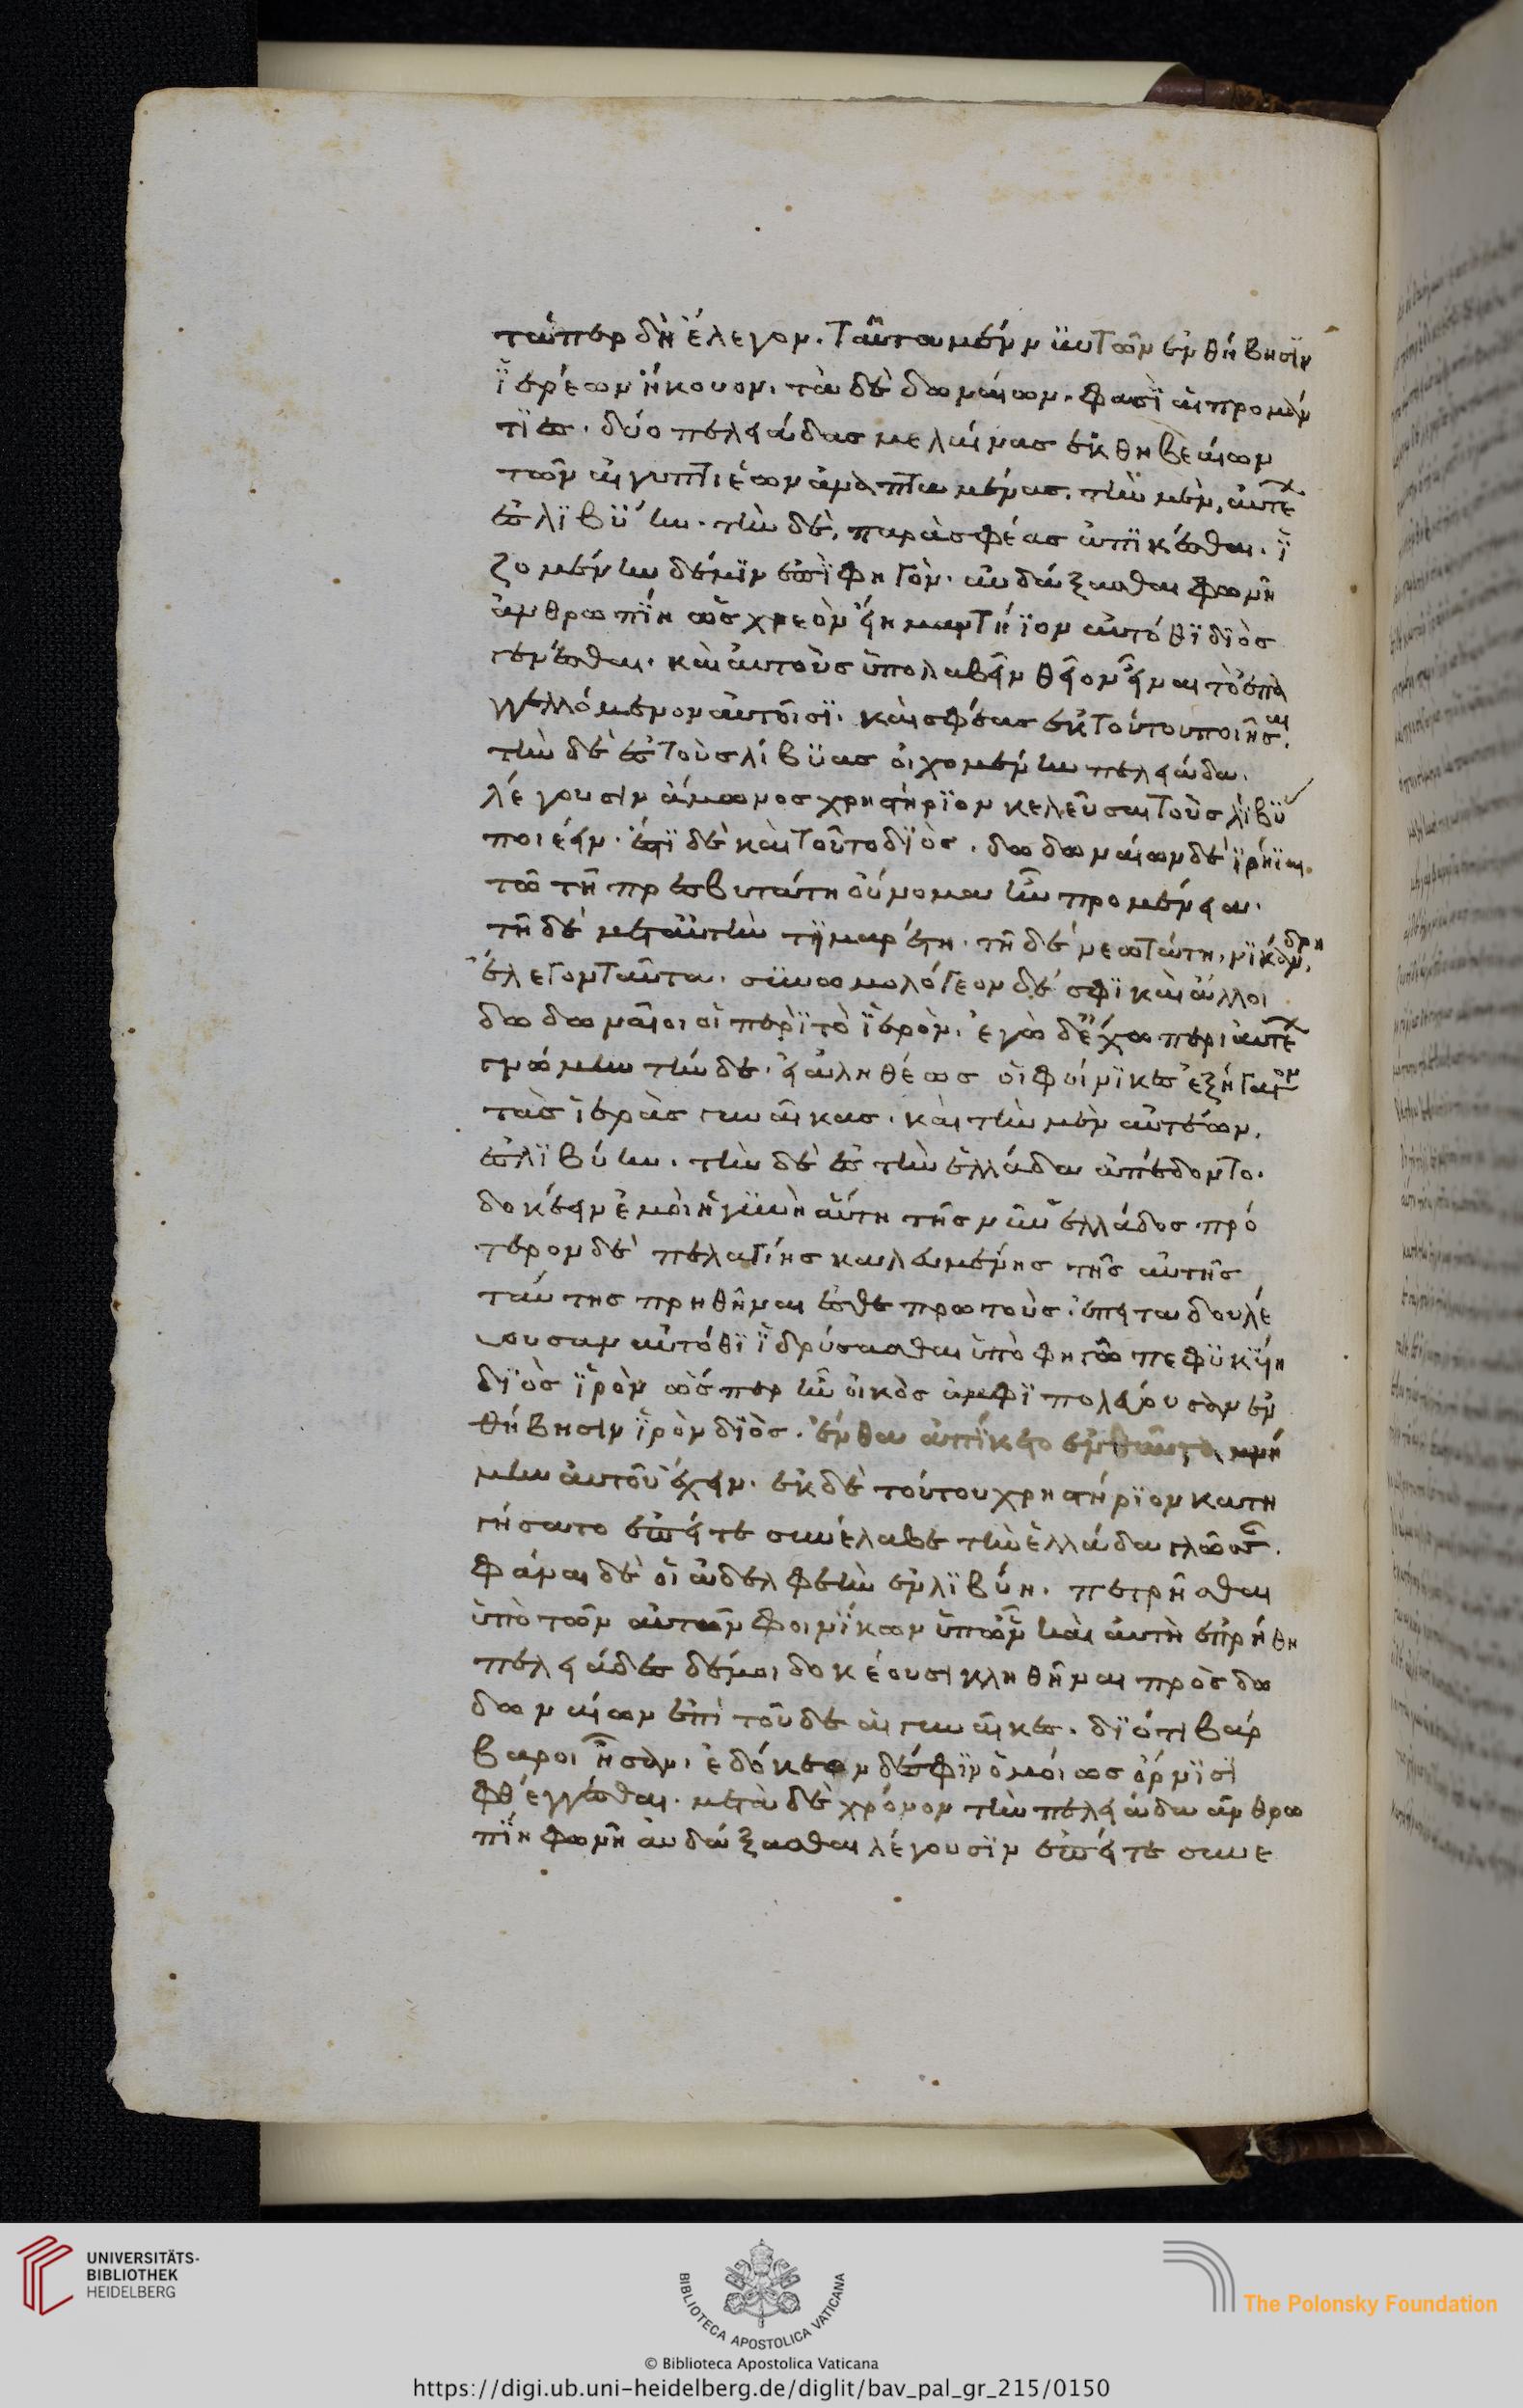 τάπερ δὴ ἔλεγον. ταῦτα μέν νυν τῶν ἐν θήβησϊν
ϊερέων ἤκουον. τὰ δὲ δωναίων. φασὶ αἱ προμάν
τϊες. δύο πελειάδας μελαίνας ἐκ θηβεαίων
τῶν αἰγυπτιέων ἀναπταμένας. τὴν μὲν, αὐτέ
ἐς λϊβύην. τὴν δὲ, παρὰ σφέας ἀπϊκέσθαι. ἳ
ζομένην δέ μιν ἐπὶ φηγὸν. αὐδάξασθαι φωνῆ
ἀνθρωπίνη ὡς χρεὸν εἴη μαντήϊον αὐτόθϊ διὸς
γενέσθαι. καὶ αὐτοὺς ὑπολαβεῖν θεῖον εἶναι τὸ ἐπα
γγελλόμενον αὐτοῖσϊ. καὶ σφέας ἐκ τούτου ποιῆσαι.
τὴν δὲ ἐς τοὺς λίβυας οἰχομένην πελειάδα.
λέγουσιν ἄμμωνος χρηστήρϊον κελεῦσαι τοὺς λίβυ
ποιέειν. ἔστϊ δὲ καὶ τοῦτο διὸς. δωδωναίων δὲ ϊρήϊαι.
τῶ τῆ πρεσβυτάτη οὔνομα ἦν προμένεια.
τῆ δὲ μετ' αὐτὴν τϊμαρέτη. τῆ δὲ νεωτάτη, νϊκάνδρη.
ἔλεγον ταῦτα. συνωμολόγεον δέ σφϊ καὶ ἄλλοι
δωδωναῖοι οἱ περὶ τὸ ϊερὸν. ἐγὼ δ' ἔχω περὶ αὐτέ
γνώμην τήνδε. εἰ ἀληθέως οἱ φοίνϊκες ἐξήγαγον
τὰς ϊερὰς γυναῖκας. καὶ τὴν μὲν αὐτέων.
ἐς λϊβύην. τὴν δὲ ἐς τὴν ἑλλάδα ἀπέδοντο.
δοκέειν ἐμοὶ ἡ γυνὴ αὕτη τῆς νῦν ἑλλάδος πρό
τερον δὲ πελασγίης καλευμένης τῆς αὐτῆς
ταύτης πρηθῆναι ἐς θεσπρωτοὺς. ἔπειτα δουλε
ύουσαν αὐτόθϊ ϊδρύσασθαι ὑπὸ φηγῶ πεφυκυίη
διὸς ϊρὸν ὥσπερ ἦν οἰκὸς ἀμφιπολεύουσαν ἐν
θήβησιν ϊρὸν διὸς. ἔνθα ἀπίκετο ἐνθαῦτα μνή
μην αὐτοῦ ἔχειν. ἐκ δὲ τούτου χρηστήριον κατη
γήσατο ἐπείτε συνέλαβε τὴν ἑλλάδα γλῶσσαν.
φάναι δὲ οἱ ἀδελφεὴν ἐν λϊβύη. πεπρῆσθαι
ὑπὸ τῶν αὐτῶν φοινίκων ὑπ' ὧν καὶ αὐτὴ ἐπρήθη
πελειάδες δέ μοι δοκέουσι κληθῆναι πρὸς δω
δωναίων ἐπὶ τοῦδε αἱ γυναῖκες. διότι βάρ
βαροι ἦσαν. ἐδόκεον δέ σφϊν ὁμοίως ὄρνϊσϊ
φθέγγεσθαι. μετὰ δὲ χρόνον τὴν πελειάδα ἀνθρω
πίνη φωνῆ αὐδάξασθαι λέγουσϊν ἐπείτε συνε
UNIVERSITÄTS-
BIBLIOTHEK
HEIDELBERG
BIBLIOTECA APOSTOLICA VATICANA
The Polonsky Foundation
© Biblioteca Apostolica Vaticana
https://digi.ub.uni-heidelberg.de/diglit/bav_pal_gr_215/0150